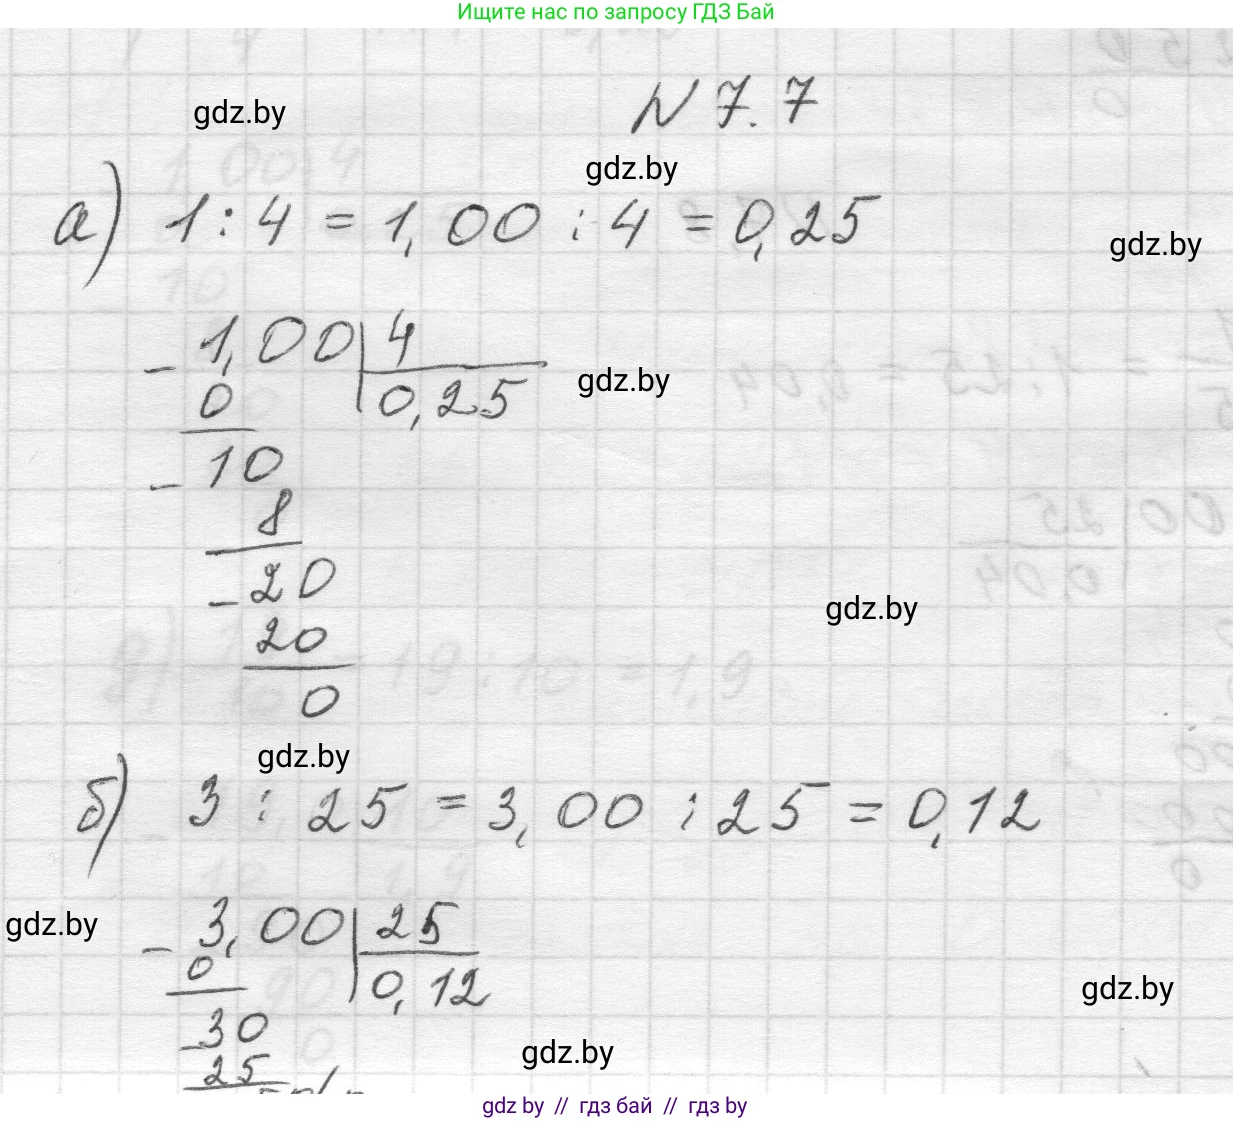 Ищите нас по запросу ГДЗ Бай
gdz.by
N 7.7
gdz.by
а) 1 : 4 = 1,00 : 4 = 0,25
gdz.by
- 1,00 | 4
gdz.by
0 | 0,25
- 10
8
- 20
gdz.by
20
0
gdz.by
б) 3 : 25 = 3,00 : 25 = 0,12
gdz.by
- 3,00 | 25
0 | 0,12
gdz.by
- 30
gdz.by
25
gdz by // гдз бай // гдз by